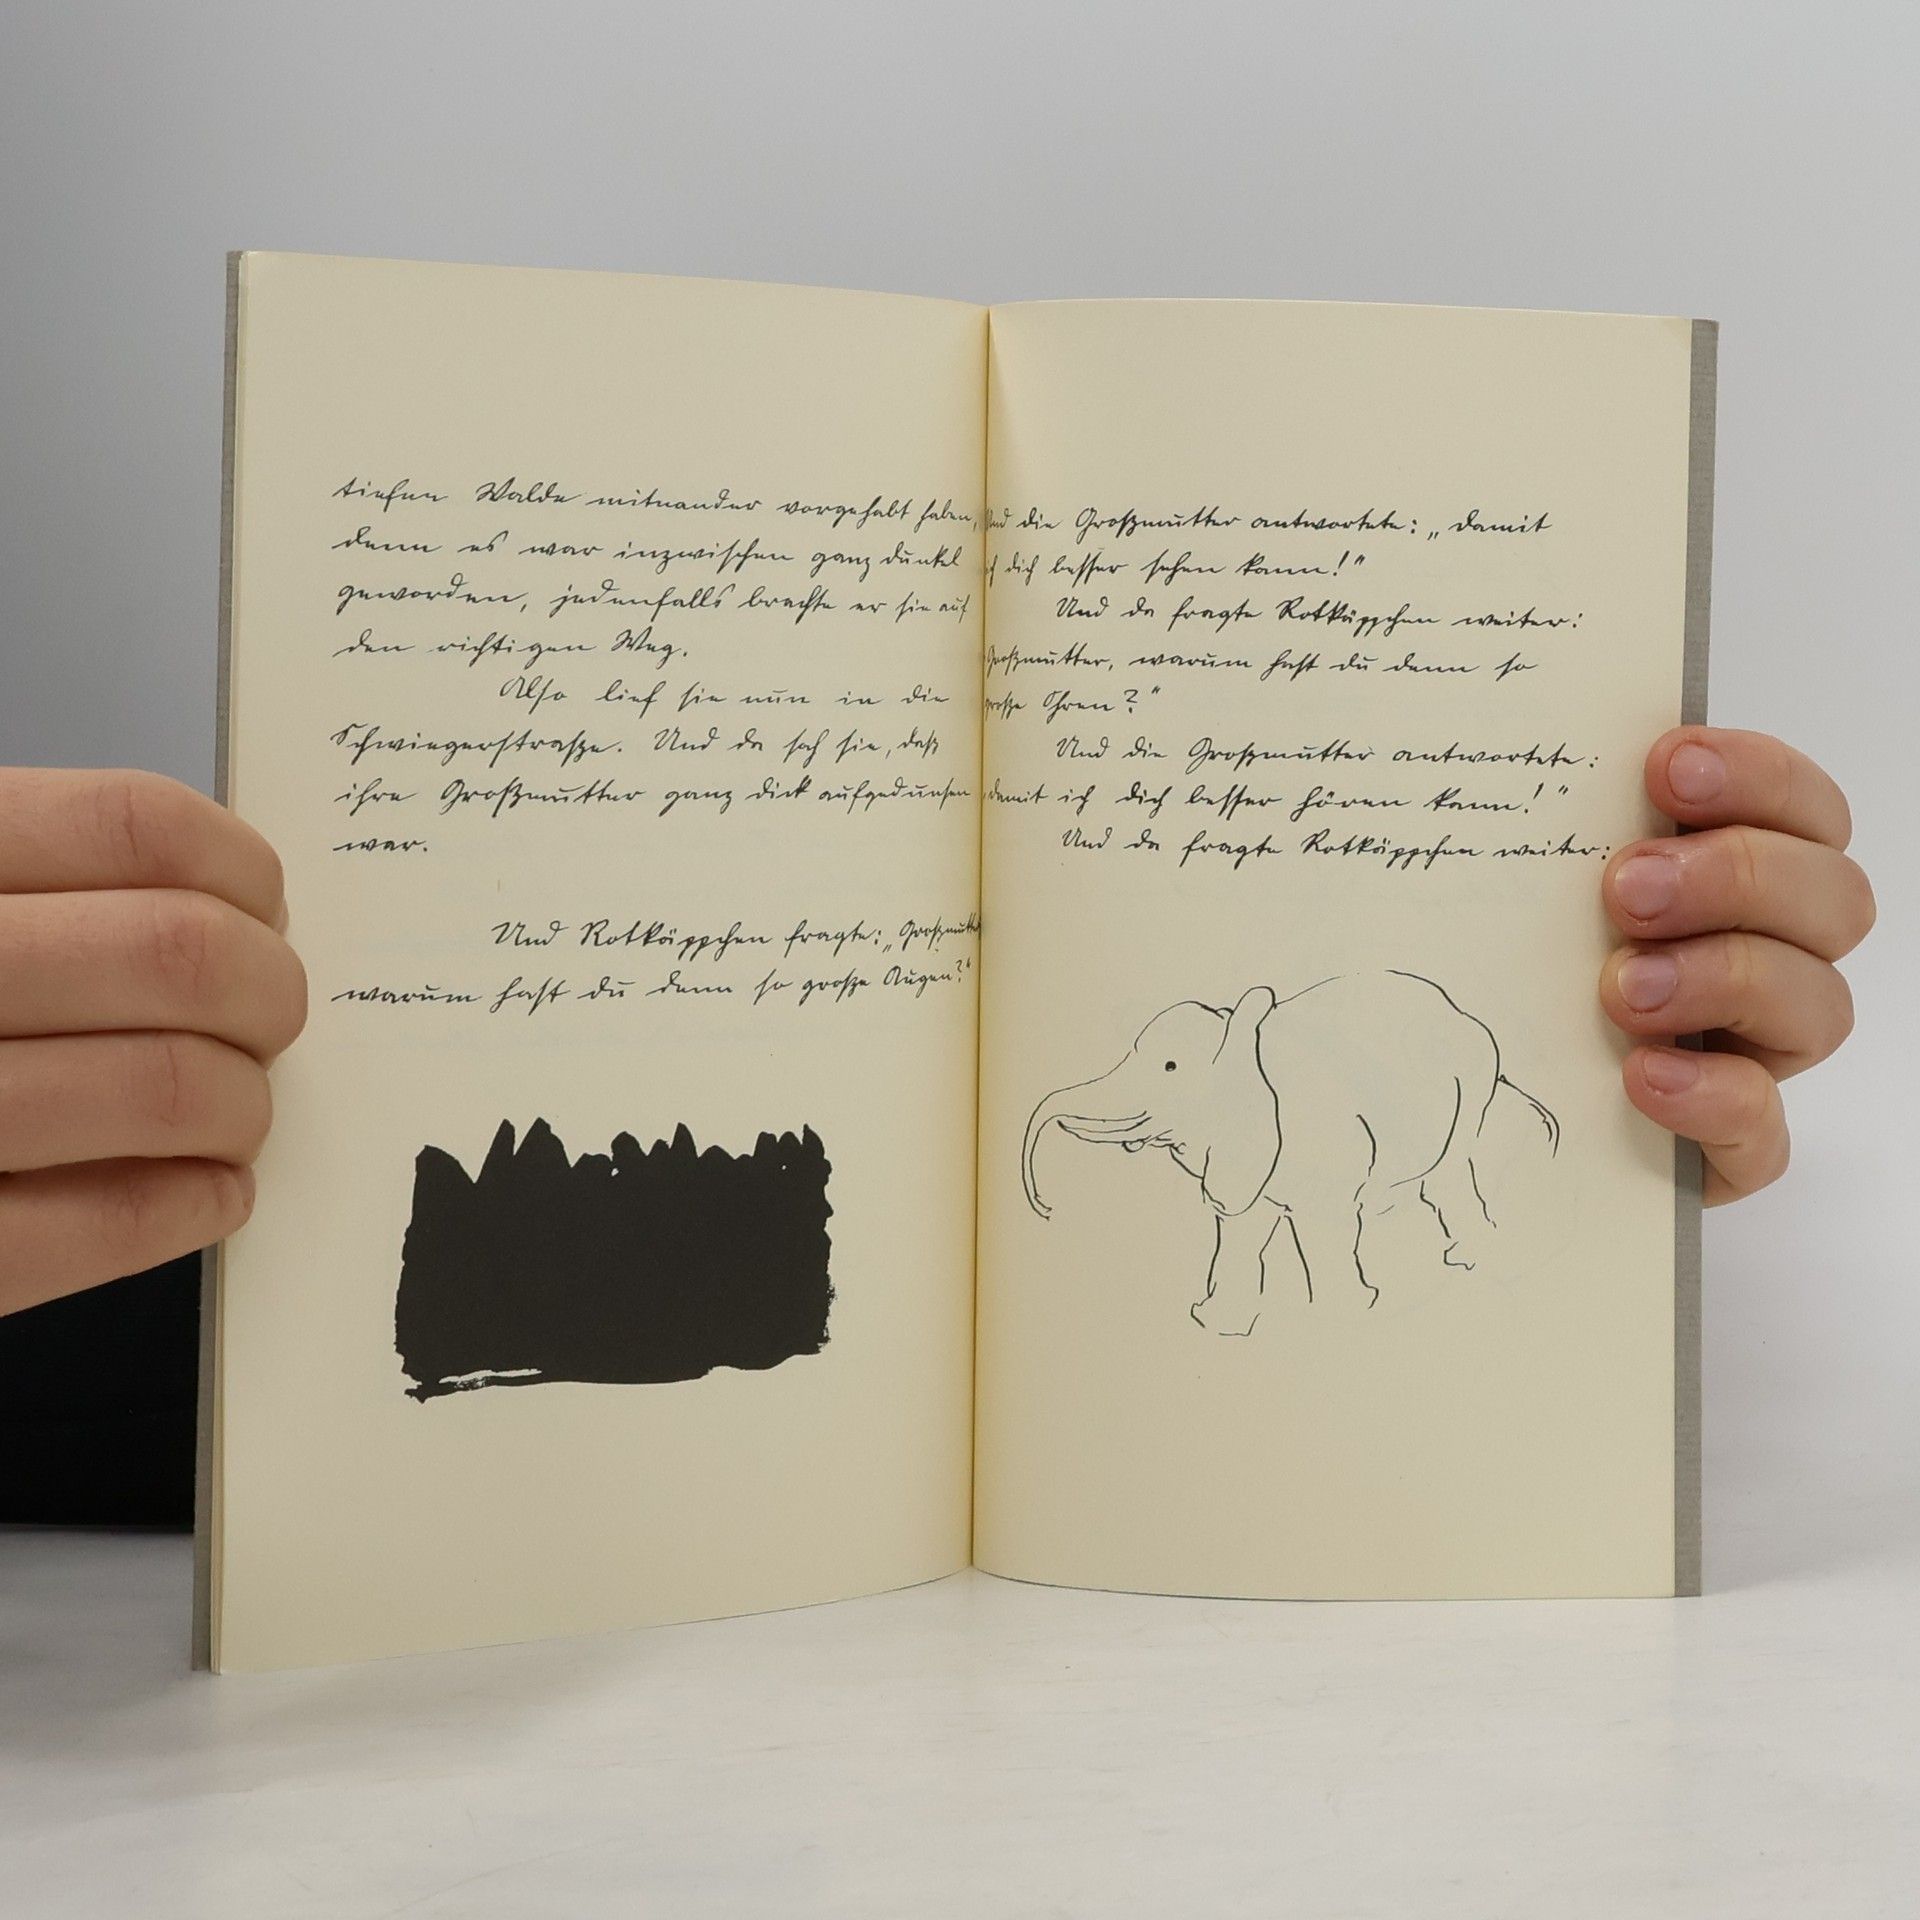 tiefen Walde miteinander vorgehabt haben,
denn es war inzwischen ganz dunkel
geworden, jedenfalls brachte er sie auf
den richtigen Weg.
Also lief sie nun in die
Schwiegerstraße. Und da sah sie, daß
ihre Großmutter ganz dick aufgedunsen
war.
Und Rotkäppchen fragte: „Großmutter
warum hast du denn so große Augen?"
Und die Großmutter antwortete: „damit
ich dich besser sehen kann!"
Und da fragte Rotkäppchen weiter:
Großmutter, warum hast du denn so
große Ohren?"
Und die Großmutter antwortete:
„damit ich dich besser hören kann!"
Und da fragte Rotkäppchen weiter: